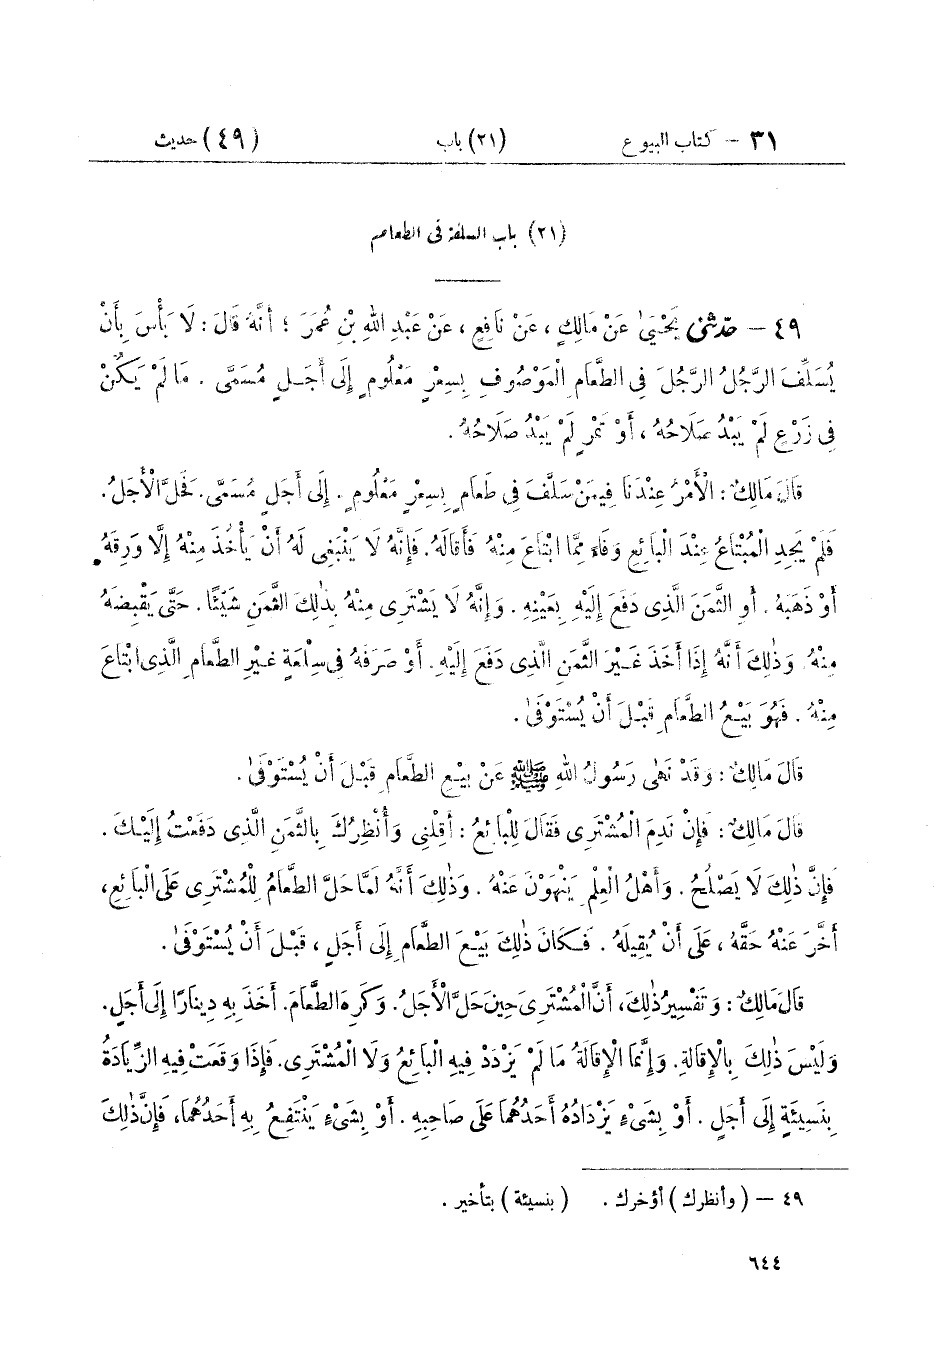 ٣١ – كتاب البيوع (٢١) باب (٤٩) حديث
(٢١) باب السلفة فى الطعام
٤٩ – حَدَّثَنِى يَحْيَىٰ عَنْ مَالِكٍ، عَنْ نَافِعٍ، عَنْ عَبْدِ اللهِ بْنِ عُمَرَ؛ أَنَّهُ قَالَ: لَا بَأْسَ بِأَنْ
يُسَلِّفَ الرَّجُلُ الرَّجُلَ فِى الطَّعَامِ الْمَوْصُوفِ بِسِعْرٍ مَعْلُومٍ إِلَى أَجَلٍ مُسَمًّى. مَا لَمْ يَكُنْ
فِى زَرْعٍ لَمْ يَبْدُ صَلَاحُهُ، أَوْ تَمْرٍ لَمْ يَبْدُ صَلَاحُهُ.
قَالَ مَالِكٌ: الْأَمْرُ عِنْدَنَا فِيمَنْ سَلَّفَ فِى طَعَامٍ بِسِعْرٍ مَعْلُومٍ. إِلَى أَجَلٍ مُسَمًّى. فَحَلَّ الْأَجَلُ.
فَلَمْ يَجِدِ الْمُبْتَاعُ عِنْدَ الْبَائِعِ وَفَاءً مِمَّا ابْتَاعَ مِنْهُ فَأَقَالَهُ. فَإِنَّهُ لَا يَنْبَغِى لَهُ أَنْ يَأْخُذَ مِنْهُ إِلَّا وَرِقَهُ
أَوْ ذَهَبَهُ. أَوِ الثَّمَنَ الَّذِى دَفَعَ إِلَيْهِ بِعَيْنِهِ. وَإِنَّهُ لَا يَشْتَرِى مِنْهُ بِذٰلِكَ الثَّمَنِ شَيْئًا. حَتَّى يَقْبِضَهُ
مِنْهُ. وَذٰلِكَ أَنَّهُ إِذَا أَخَذَ غَيْرَ الثَّمَنِ الَّذِى دَفَعَ إِلَيْهِ. أَوْ صَرَفَهُ فِى سِلْعَةٍ غَيْرِ الطَّعَامِ الَّذِى ابْتَاعَ
مِنْهُ. فَهُوَ بَيْعُ الطَّعَامِ قَبْلَ أَنْ يُسْتَوْفَىٰ.
قَالَ مَالِكٌ: وَقَدْ نَهَى رَسُولُ اللهِ ﷺ عَنْ بَيْعِ الطَّعَامِ قَبْلَ أَنْ يُسْتَوْفَىٰ.
قَالَ مَالِكٌ: فَإِنْ نَدِمَ الْمُشْتَرِى فَقَالَ لِلْبَائِعِ: أَقِلْنِى وَأُنْظِرُكَ بِالثَّمَنِ الَّذِى دَفَعْتُ إِلَيْكَ.
فَإِنَّ ذٰلِكَ لَا يَصْلُحُ. وَأَهْلُ الْعِلْمِ يَنْهَوْنَ عَنْهُ. وَذٰلِكَ أَنَّهُ لَمَّا حَلَّ الطَّعَامُ لِلْمُشْتَرِى عَلَى الْبَائِعِ،
أَخَّرَ عَنْهُ حَقَّهُ، عَلَى أَنْ يُقِيلَهُ. فَكَانَ ذٰلِكَ بَيْعَ الطَّعَامِ إِلَى أَجَلٍ، قَبْلَ أَنْ يُسْتَوْفَىٰ.
قَالَ مَالِكٌ: وَتَفْسِيرُ ذٰلِكَ، أَنَّ الْمُشْتَرِىَ حِينَ حَلَّ الْأَجَلُ. وَكَرِهَ الطَّعَامَ. أَخَذَ بِهِ دِينَارًا إِلَى أَجَلٍ.
وَلَيْسَ ذٰلِكَ بِالْإِقَالَةِ. وَإِنَّمَا الْإِقَالَةُ مَا لَمْ يَزْدَدْ فِيهِ الْبَائِعُ وَلَا الْمُشْتَرِى. فَإِذَا وَقَعَتْ فِيهِ الزِّيَادَةُ
بِنَسِيئَةٍ إِلَى أَجَلٍ. أَوْ بِشَىْءٍ يَزْدَادُهُ أَحَدُهُمَا عَلَى صَاحِبِهِ. أَوْ بِشَىْءٍ يَنْتَفِعُ بِهِ أَحَدُهُمَا، فَإِنَّ ذٰلِكَ
٤٩ – (وأنظرك) أؤخرك. (بنسيئة) بتأخير.
٦٤٤